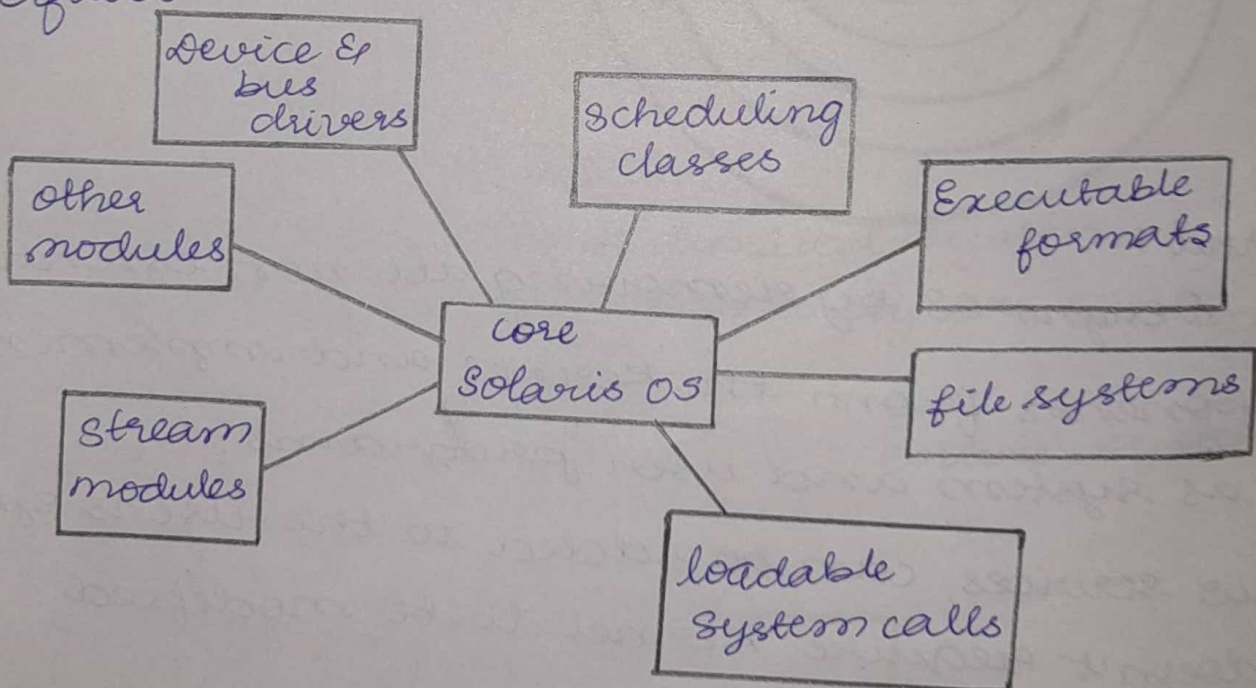 Device &
bus
drivers
scheduling
classes
other
modules
Executable
formats
core
Solaris OS
file systems
stream
modules
loadable
system calls